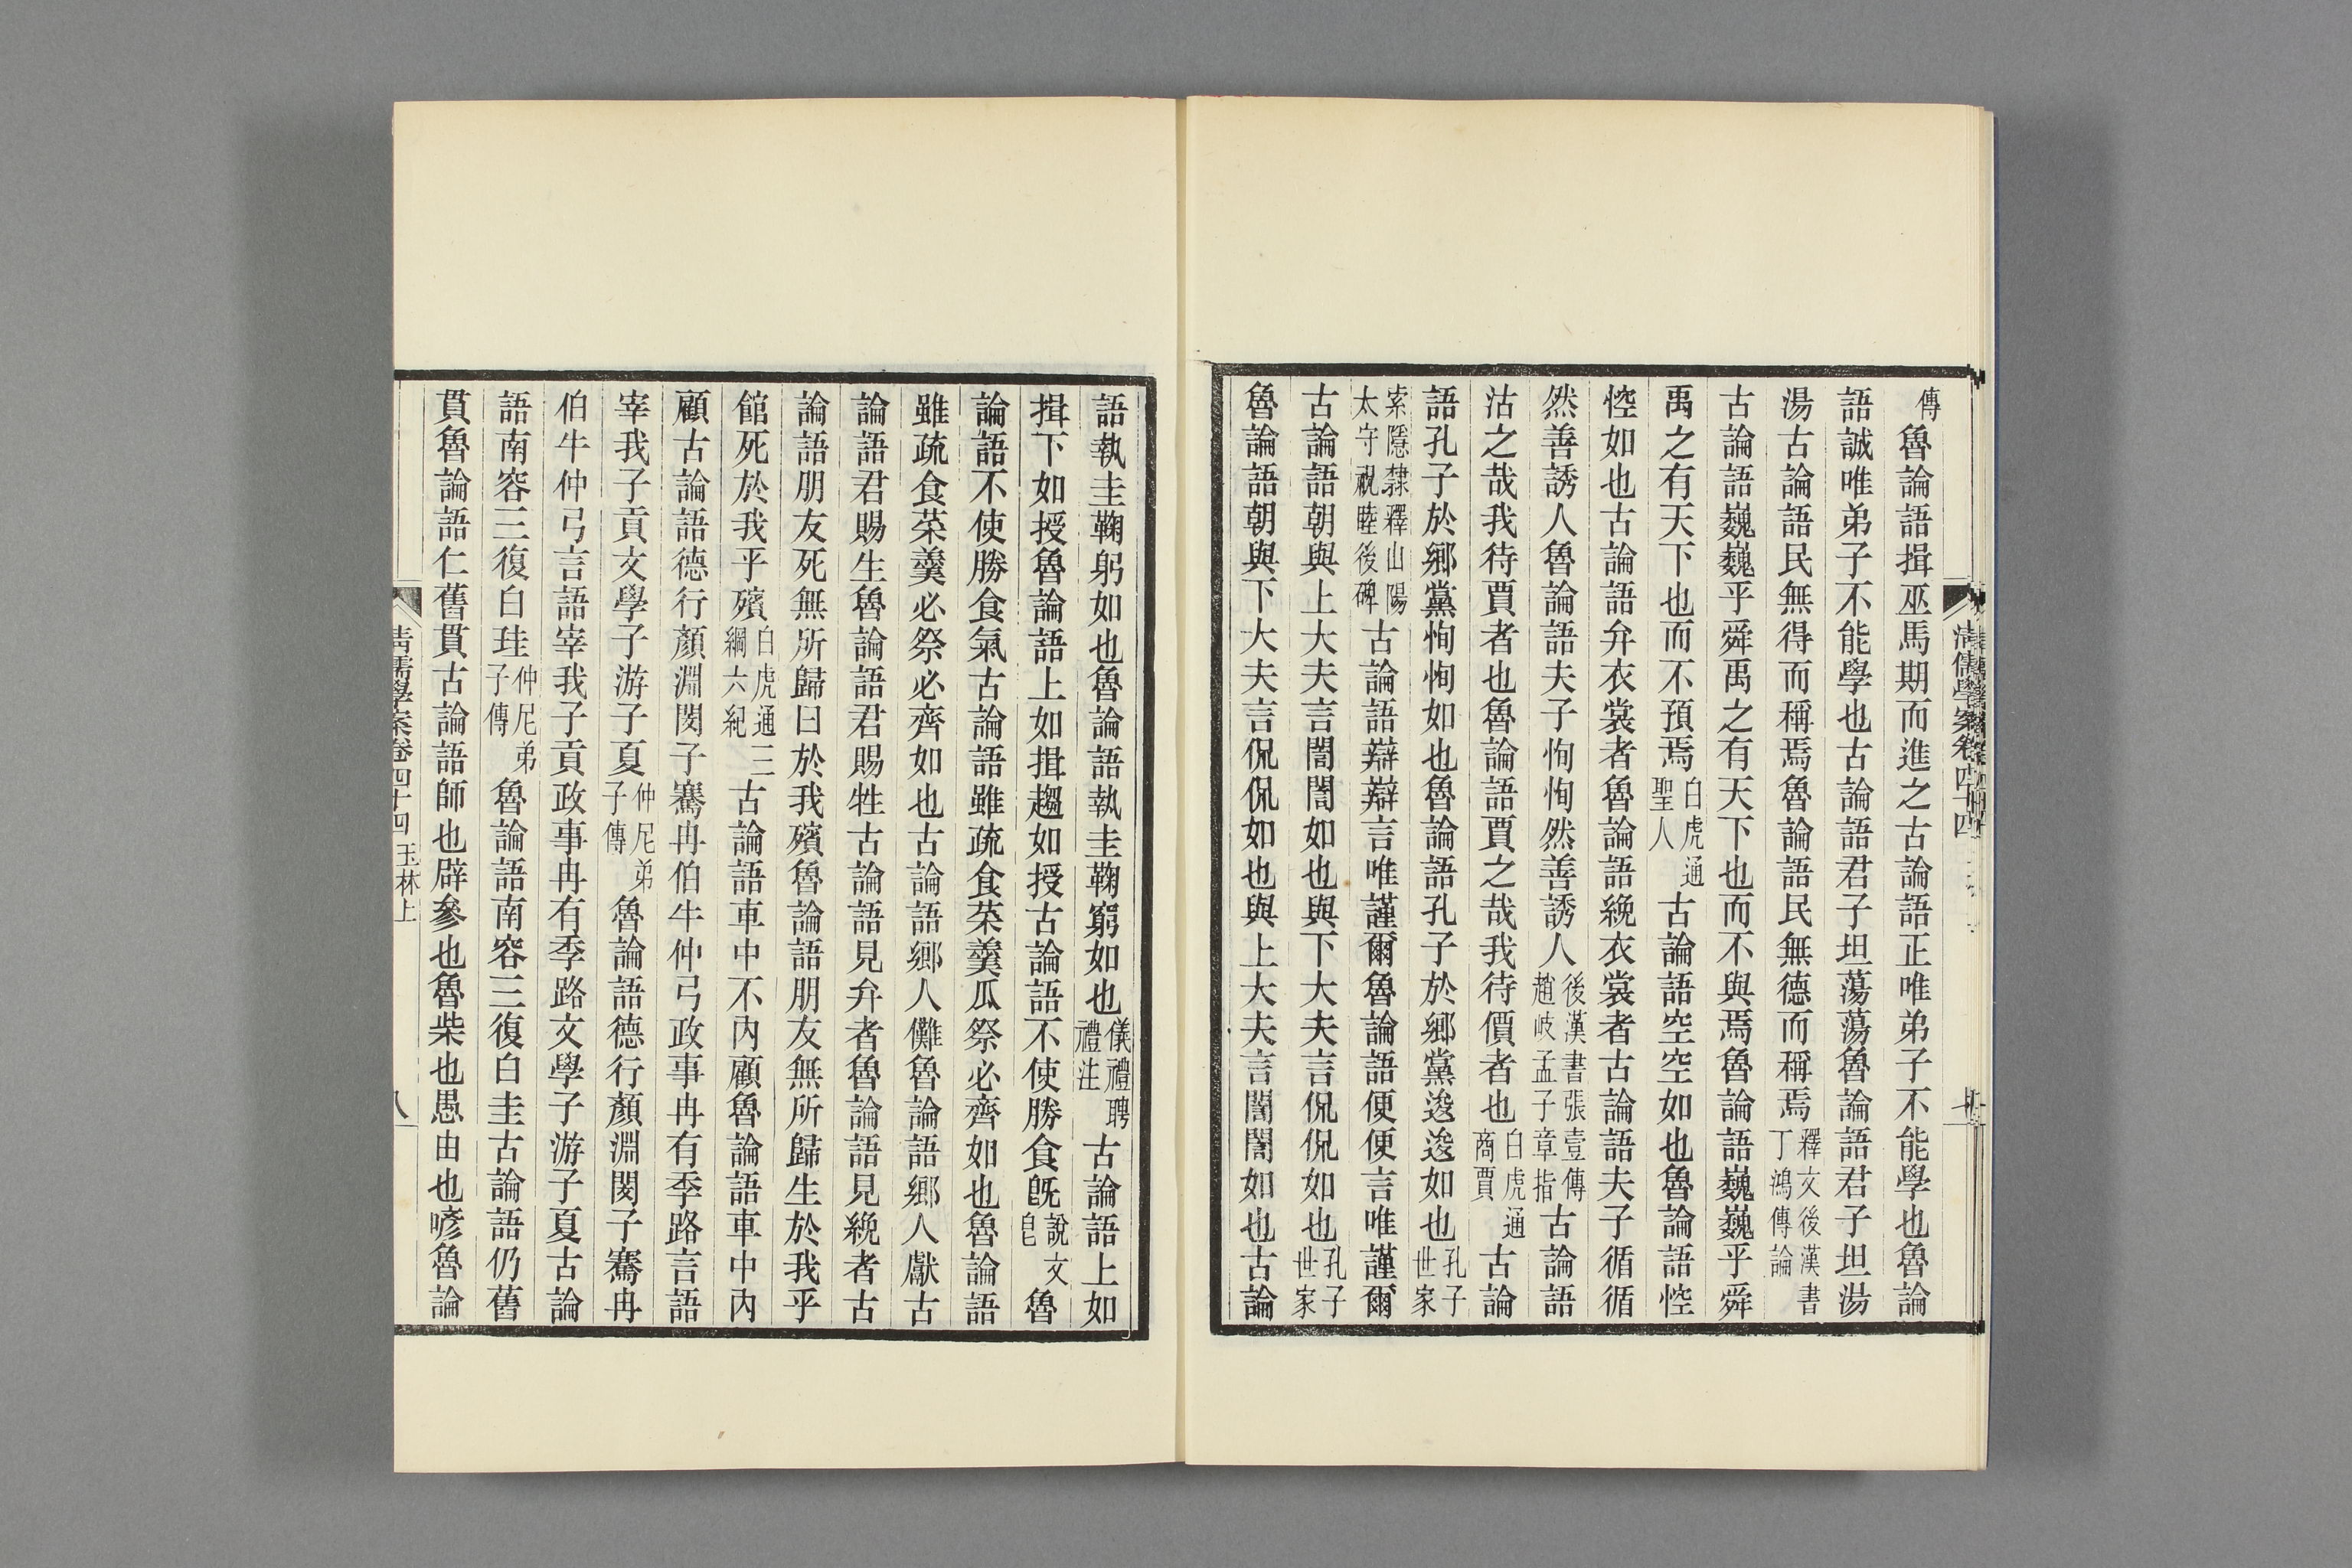 傳魯論語揖巫馬期而進之古論語正唯弟子不能學也魯論
語誠唯弟子不能學也古論語君子坦蕩蕩魯論語君子坦湯
湯古論語民無得而稱焉魯論語民無德而稱焉釋文後漢書丁鴻傳論
古論語巍巍乎舜禹之有天下也而不與焉魯論語巍巍乎舜
禹之有天下也而不預焉白虎通聖人古論語空空如也魯論語悾
悾如也古論語弁衣裳者魯論語絻衣裳者古論語夫子循循
然善誘人魯論語夫子恂恂然善誘人後漢書張壹傳趙岐孟子章指古論語
沽之哉我待賈者也魯論語賈之哉我待價者也白虎通商賈古論
語孔子於鄉黨恂恂如也魯論語孔子於鄉黨逡逡如也孔子世家
索隱隸釋山陽太守祝睦後碑古論語辯辯言唯謹爾魯論語便便言唯謹爾
古論語朝與上大夫言誾誾如也與下大夫言侃侃如也孔子世家
魯論語朝與下大夫言侃侃如也與上大夫言誾誾如也古論
語執圭鞠躬如也魯論語執圭鞠窮如也儀禮聘禮注古論語上如
揖下如授魯論語上如揖趨如授古論語不使勝食旣說文皀魯
論語不使勝食氣古論語雖疏食菜羹瓜祭必齊如也魯論語
雖疏食菜羹必祭必齊如也古論語鄉人儺魯論語鄉人獻古
論語君賜生魯論語君賜牲古論語見弁者魯論語見絻者古
論語朋友死無所歸曰於我殯魯論語朋友無所歸生於我乎
館死於我乎殯白虎通三綱六紀古論語車中不內顧魯論語車中內
顧古論語德行顏淵閔子騫冉伯牛仲弓政事冉有季路言語
宰我子貢文學子游子夏仲尼弟子傳魯論語德行顏淵閔子騫冉
伯牛仲弓言語宰我子貢政事冉有季路文學子游子夏古論
語南容三復白珪仲尼弟子傳魯論語南容三復白圭古論語仍舊
貫魯論語仁舊貫古論語師也辟參也魯柴也愚由也喭魯論
清儒學案卷四十四 玉林上
八